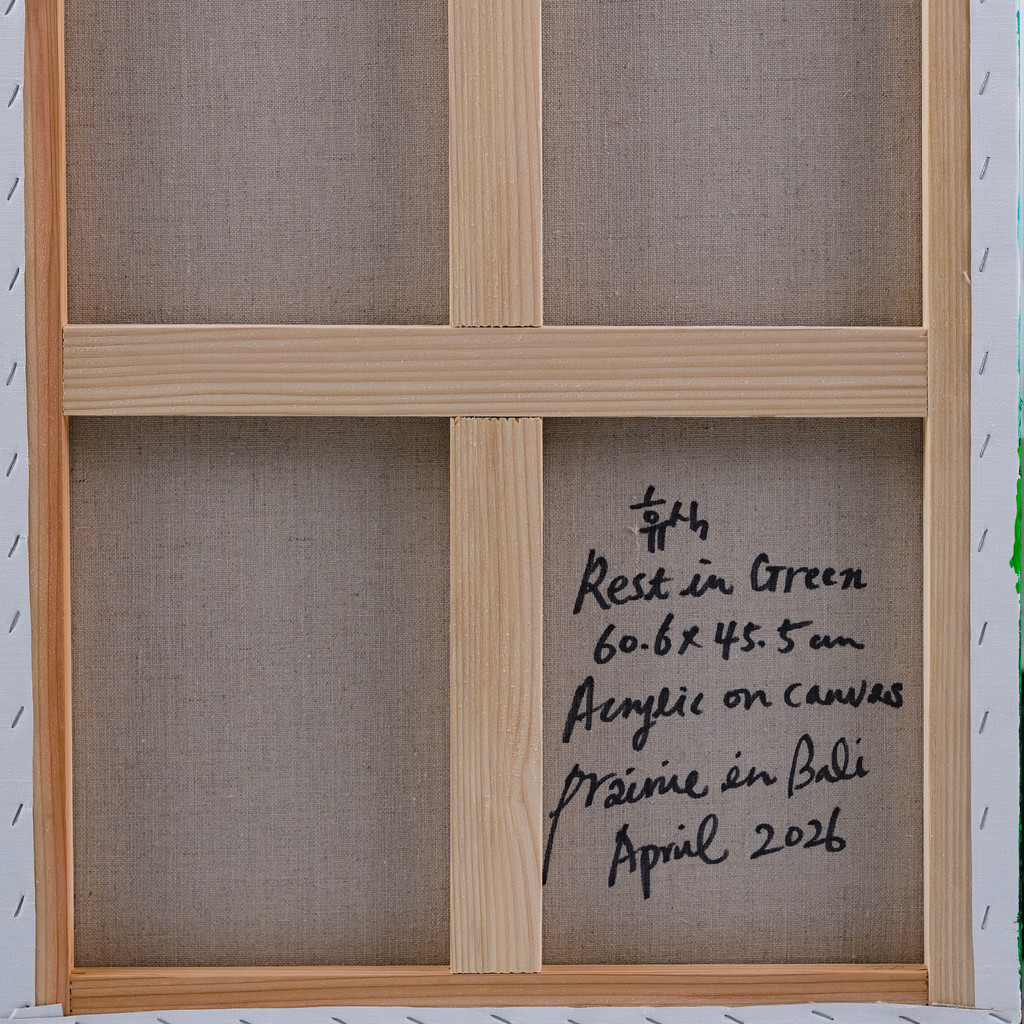 휴식
Rest in Green
60.6 x 45.5 cm
Acrylic on canvas
prairie in Bali
April 2026